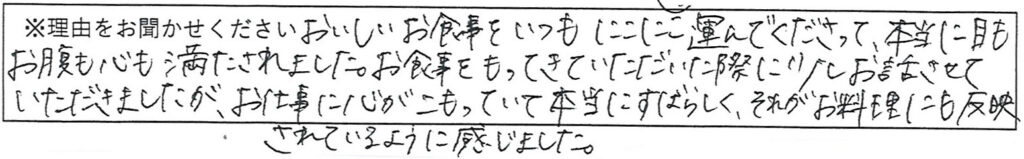 ※理由をお聞かせくださいおいしいお食事をいつもにこにこ運んでくださって、本当に目も
お腹も心も満たされました。お食事をもってきていただいた際に少しお話させて
いただきましたが、お仕事に心がこもっていて本当にすばらしく、それがお料理にも反映
されているように感じました。